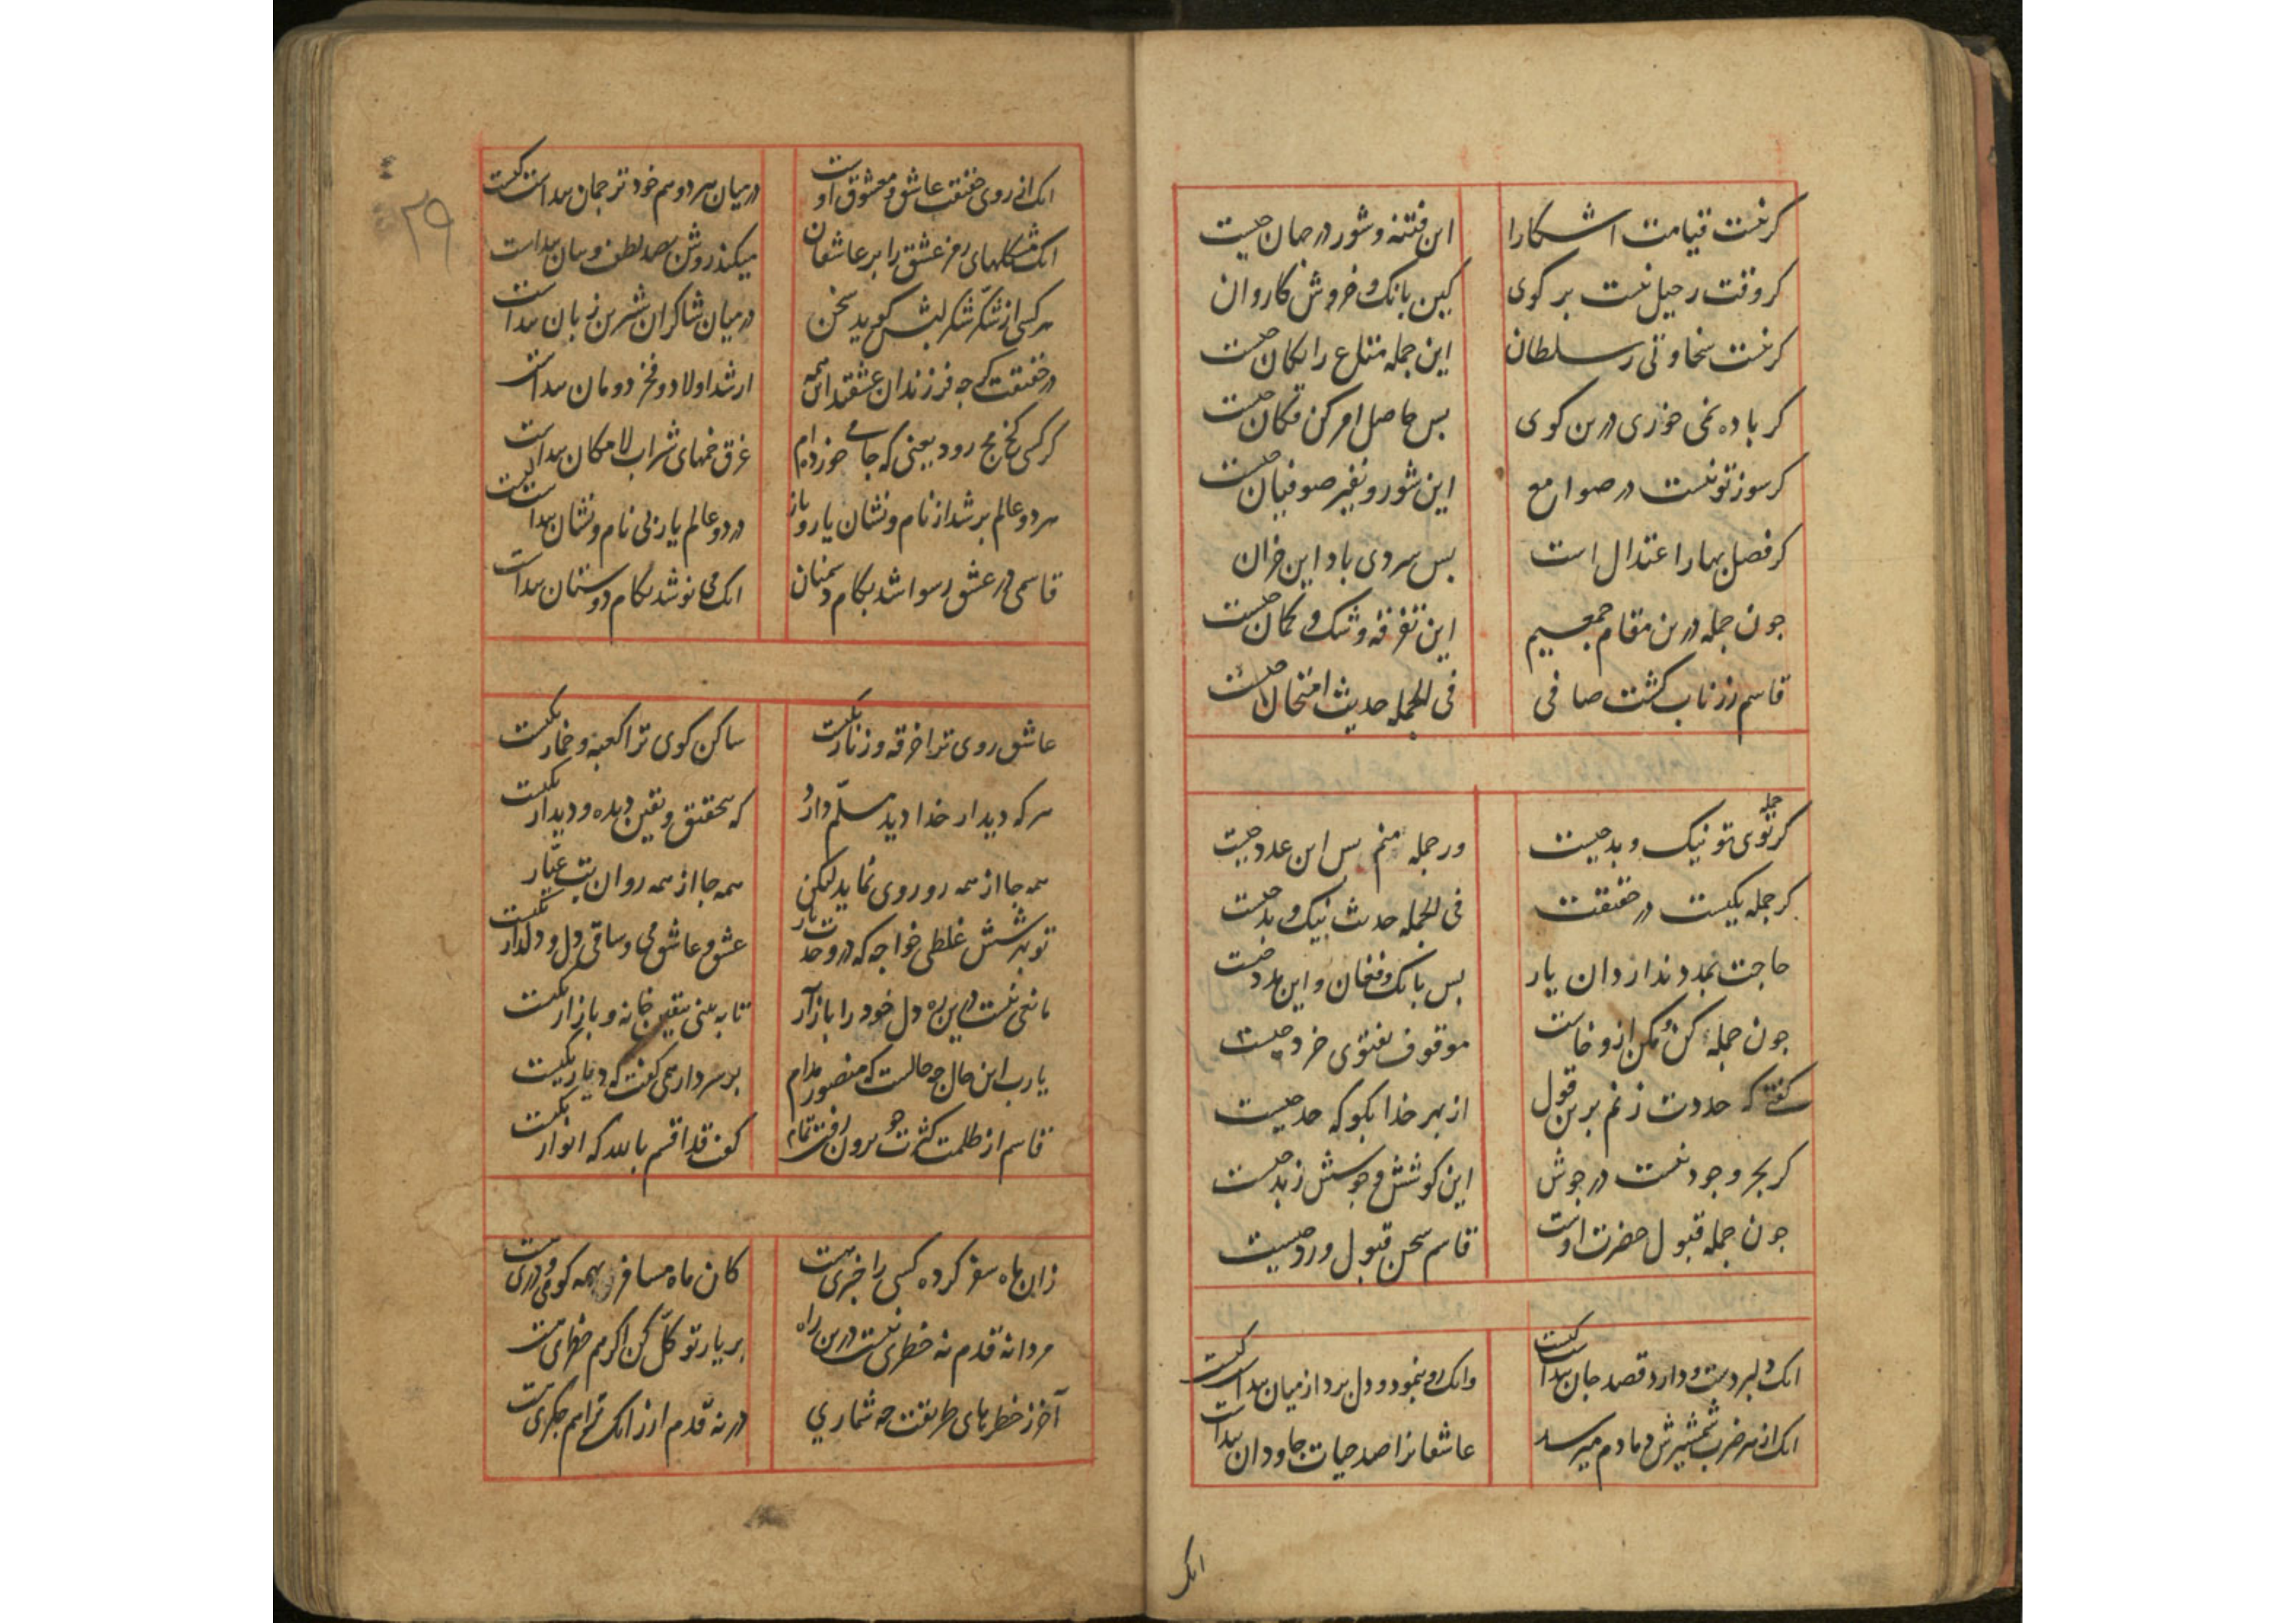 کر نیست قیامت اشکارا این فتنه و شور در جهان چیست
کر وقت رحیل نیست بر کوی کین بانک و خروش کاروان
کر نیست سخاوتی ز سلطان این جمله متاع رایکان چیست
کر باده نمی خوری درین کوی بس حاصل امر کن فکان چیست
کر سوز تو نیست در صوامع این شور و نفیر صوفیان چیست
کر فصل بهار اعتدال است بس سردی باد این خزان
جون جمله درین مقام جمعیم این تفرقه و شک و کمان چیست
قاسم زر ناب کشت صافی فی الجمله حدیث امتحان چیست
کر جمله توی تو نیک و بد چیست ور جمله منم بس این عدد چیست
کر جمله یکیست در حقیقت فی الجمله حدیث نیک و بد چیست
حاجت بمدد ندارد ان یار بس بانک و فغان و این مدد چیست
جون جمله کن و مکن ازو خاست موقوف بفتوی خرد چیست
کفتی که حدت زنم برین قول از بهر خدا بکو که حد چیست
کر بحر وجود نیست در جوش این کوشش و جوشش زبد چیست
جون جمله قبول حضرت اوست قاسم سخن قبول و رد چیست
انک دلبر دست و دارد قصد جان پیداست کیست وانک رو بنمود و دل برد از میان پیداست کیست
انک از هر ضرب شمشیرش دمادم میرسد عاشقانرا صد حیات جاودان پیداست
انک
۲۹
انک از روی حقیقت عاشق و معشوق اوست در میان هر دو هم خود ترجمان پیداست کیست
انک مشکلهای رمز عشق را بر عاشقان میکند روشن بصد لطف و بیان پیداست
هر کسی از شکر شکر لبش کوید سخن در میان شاکران شیرین زبان پیداست
در حقیقت کر جه فرزندان عشقند این همه ارشد اولاد و فخر دودمان پیداست
کر کسی کج مج رود یعنی که جامی خورده ام غرق خمهای شراب لامکان پیداست کیست
هر دو عالم بر شد از نام و نشان یار و باز در دو عالم یار بی نام و نشان پیداست
قاسمی در عشق رسوا شد بکام دشمنان انک می نوشد بکام دوستان پیداست
عاشق روی ترا خرقه و زنار یکیست ساکن کوی ترا کعبه و خمار یکیست
هر که دیدار خدا دید مسلّم دارد که بتحقیق و یقین دیده و دیدار یکیست
همه جا از همه رو روی نماید لیکن همه جا از همه رو ان بت عیّار یکیست
تو بهر شش غلطی خواجه که در وحدت یار عشق و عاشق می و ساقی دل و دلدار یکیست
مانعی نیست درین ره دل خود را باز آر تا به بینی بیقین خانه و بازار یکیست
یارب این حال جه حالست که منصور مدام بر سر دار همی کفت که دیار یکیست
قاسم از ظلمت کثرت جو برون رفت تمام کفت قد اقسم بالله که انوار یکیست
زان ماه سفر کرده کسی را خبری هست کان ماه مسافر بهمه کوی و دری هست
مردانه قدم نه خطری نیست درین راه بر یار توکّل کن اکر هم خطری هست
آخر ز خطرهای طریقت جه شماری در نه قدم ار زانک ترا هم جکری هست